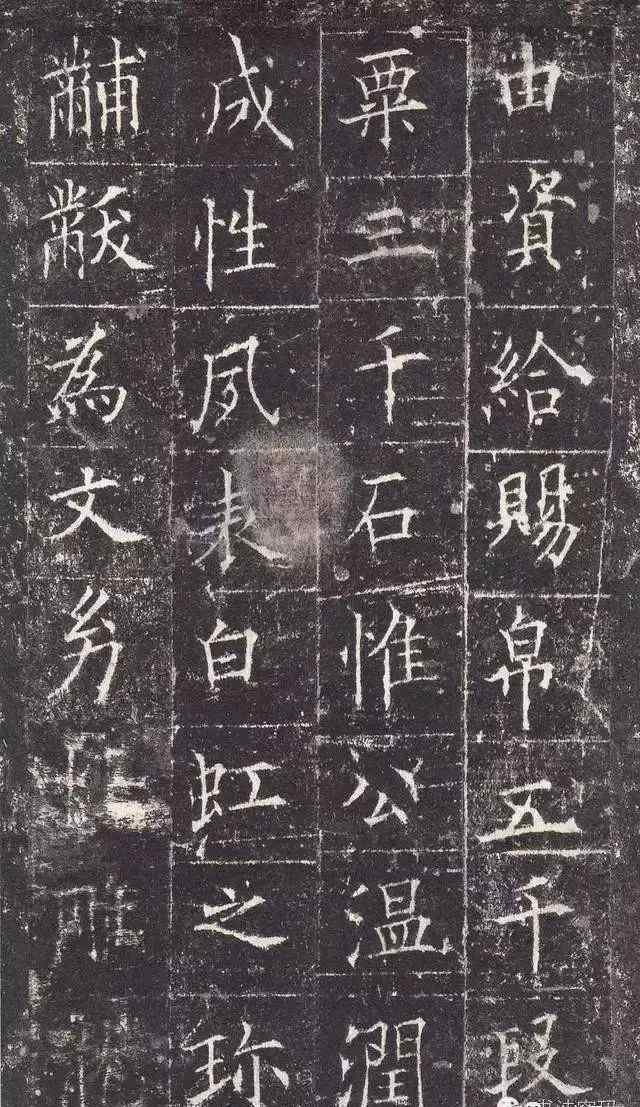 由資給賜帛五千段
粟三千石惟公温潤
成性夙表白虹之珎
黼黻為文幼